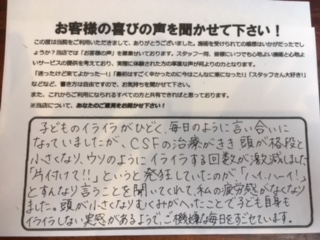 お客様の喜びの声を聞かせて下さい!
この度は当院をご利用いただきまして、ありがとうございました。施術を受けられての感想はいかがだったでしょうか?当店では「お客様の声」を募集させていただいております。スタッフ一同、皆様にいつも心地よい施術と心地よいサービスの提供を考えており、実際に体験された方の率直な声が何よりのものとなります。
「迷ったけど来てよかったー!」「最初はすごく辛かったのに今はこんなに楽になった!」「スタッフさん大好き!」などなど、書き方は自由ですので、お気持ちを聞かせて下さい。
また、これからご利用になられるすべての方と共有できればと思っております。
※当店について、あなたのご意見をお聞かせ下さい!
子どものイライラがひどく、毎日のように言い合いに
なっていましたが、CSFの治療がきき頭が格段と
小さくなり、ウソのようにイライラする回数が激減しました。
「片づけて!!」というと発狂していたのが「ハイ、ハーイ!」
とすんなり言うことを聞いてくれて、私の疲労感がなくなり
ました。頭が小さくなりむくみがへったことで子ども自身も
イライラしない実感があるようで、ご機嫌な毎日をすごせています。